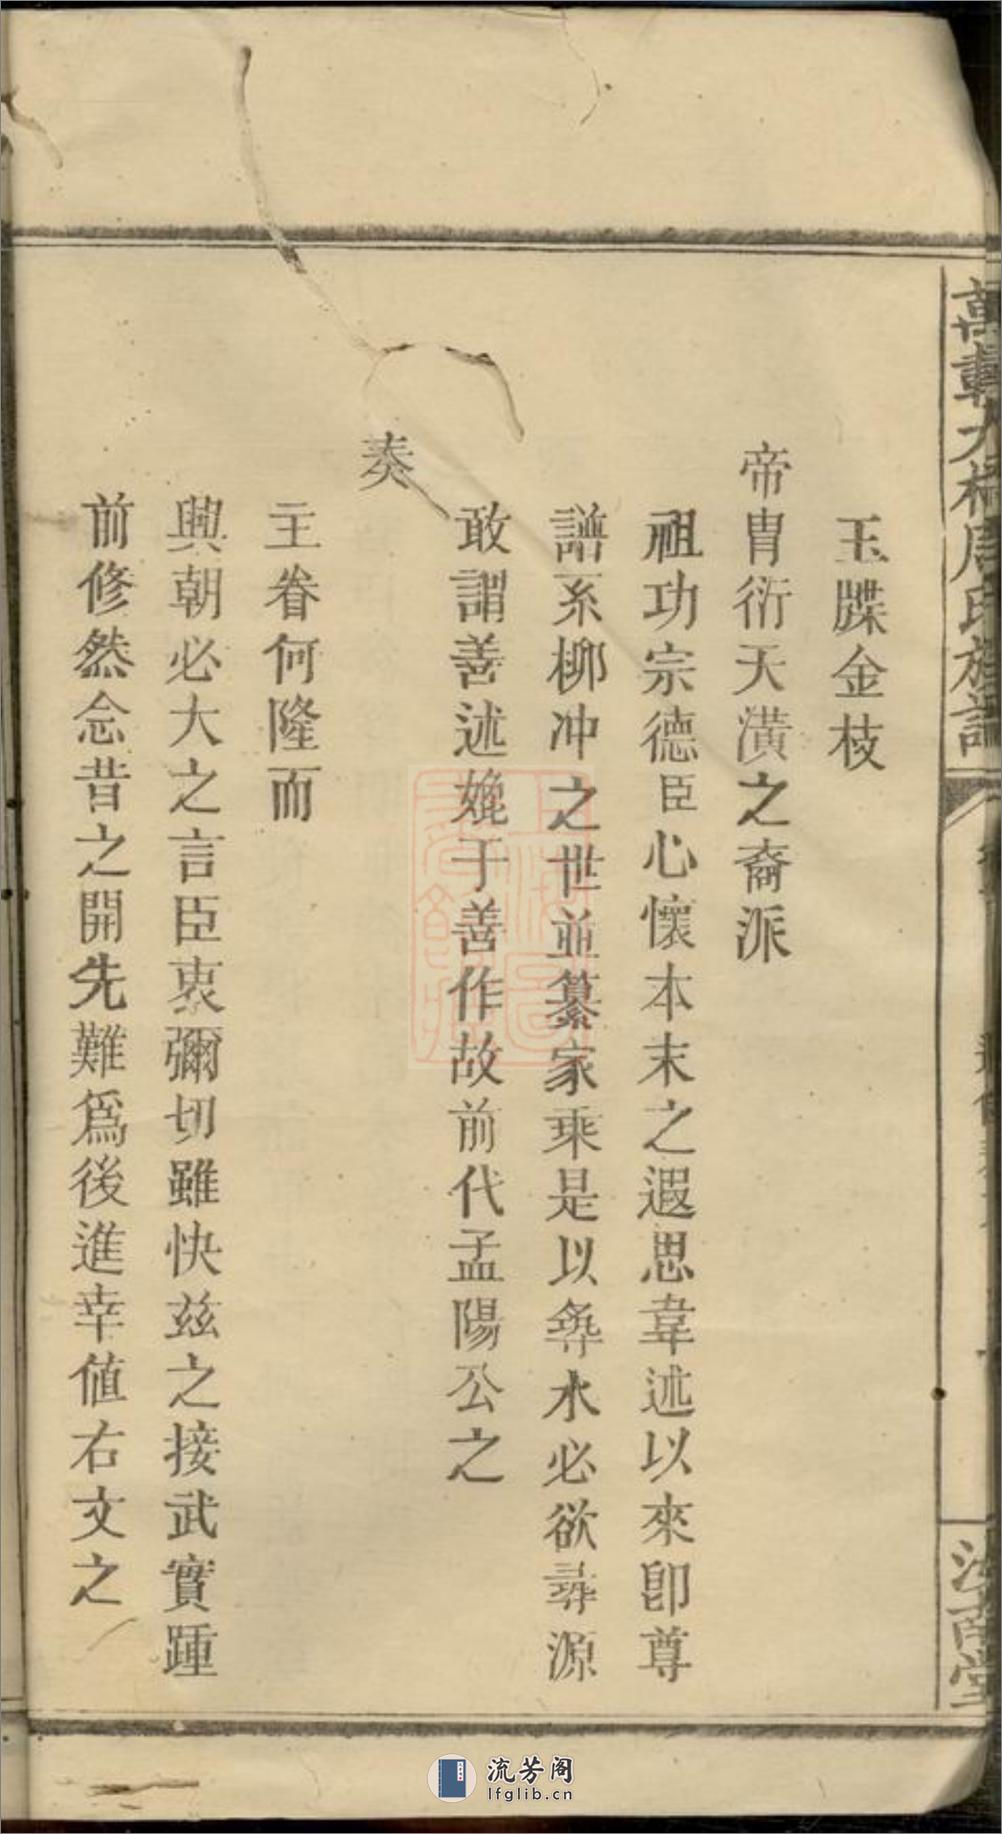 萬載大橋周氏族譜
汝南堂
玉牒金枝
帝胄衍天潢之裔派
祖功宗德臣心懷本末之遐思韋述以來卽尊
譜系柳冲之世並纂家乘是以彞水必欲尋源
敢謂善述媲于善作故前代孟陽公之
奏
主眷何隆而
興朝必大之言臣衷彌切雖快兹之接武實踵
前修然念昔之開先難爲後進幸值右文之
流芳阁
lfglib.cn